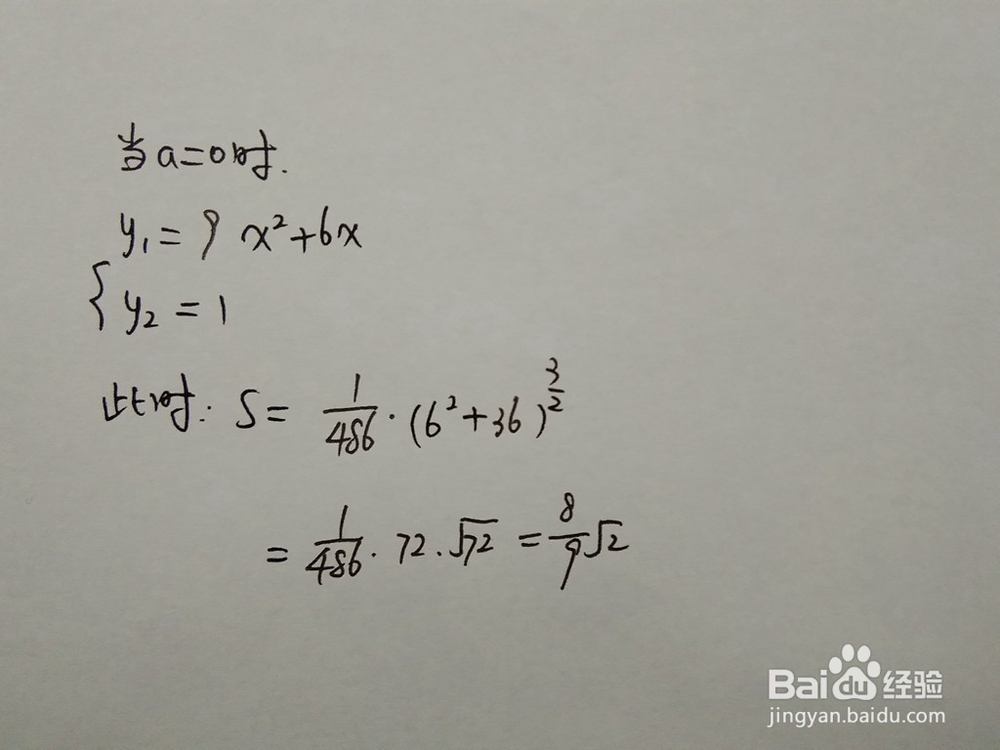 当a=0时.
y₁=9x²+6x
{y₂=1
此时: S= 1/486·(6²+36)^(3/2)
= 1/486·72·√72 = 8/9√2
Baidu经验
jingyan.baidu.com